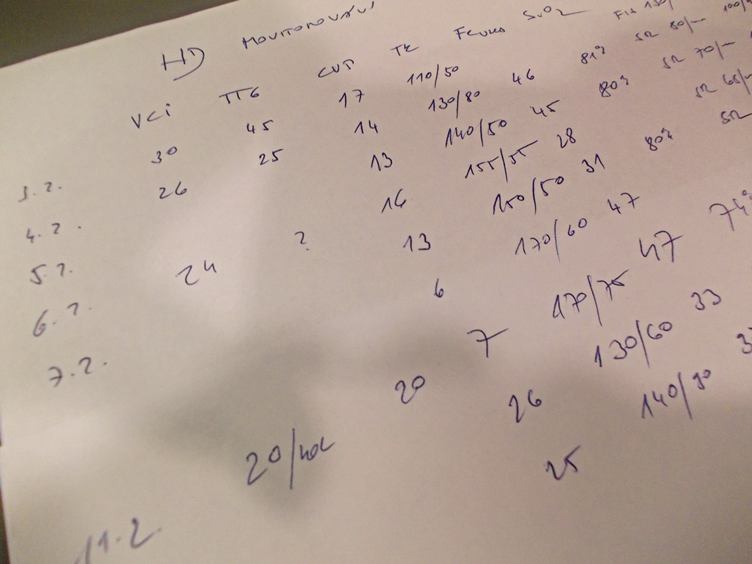 HD
VCI TTG CVP TK SvO2
3.2. 30 45 17 110/50
4.2. 26 25 14 130/80 46 81% SR 80/--
5.2. 13 140/50 45 80% SR 70/--
6.2. 24 ? 16 155/55 28 SR 65/--
7.2. 13 150/50 31 80% SR
6 170/60 47
7 170/75 47 74%
20 130/60 33
26 140/90
11.2. 25